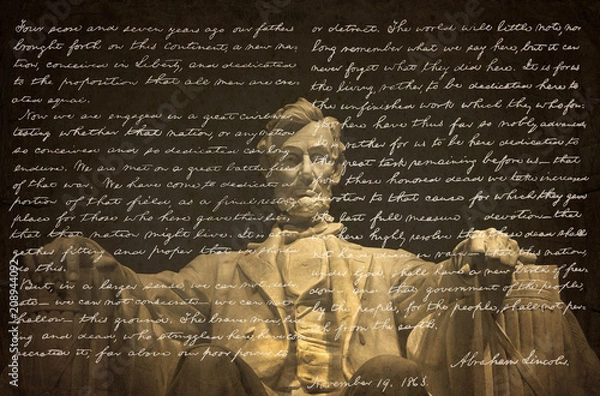 Four score and seven years ago our fathers
brought forth on this continent, a new na-
tion, conceived in Liberty, and dedicated
to the proposition that all men are cre-
ated equal.
Now we are engaged in a great civil war,
testing whether that nation, or any nation
so conceived and so dedicated, can long
endure. We are met on a great battle-field
of that war. We have come to dedicate a
portion of that field, as a final resting
place for those who here gave their lives,
that that nation might live. It is
gether fitting and proper that we should
do this.
But, in a larger sense, we can not dedi-
cate— we can not consecrate— we can not
hallow— this ground. The brave men, liv-
ing and dead, who struggled here, have con-
secrated it, far above our poor power to
or detract. The world will little note, nor
long remember what we say here, but it can
never forget what they did here. It is for us
the living, rather, to be dedicated here to
the unfinished work which they who fou-
ght here have thus far so nobly advanced.
It is rather for us to be here dedicated to
the great task remaining before us— that
from these honored dead we take increased
devotion to that cause for which they gave
the last full measure of devotion— that
we here highly resolve that these dead shall
not have died in vain— that this nation,
under God, shall have a new birth of free-
dom— and that government of the people,
by the people, for the people, shall not per-
ish from the earth.
Abraham Lincoln.
November 19, 1863.
208944092
Adobe Stock